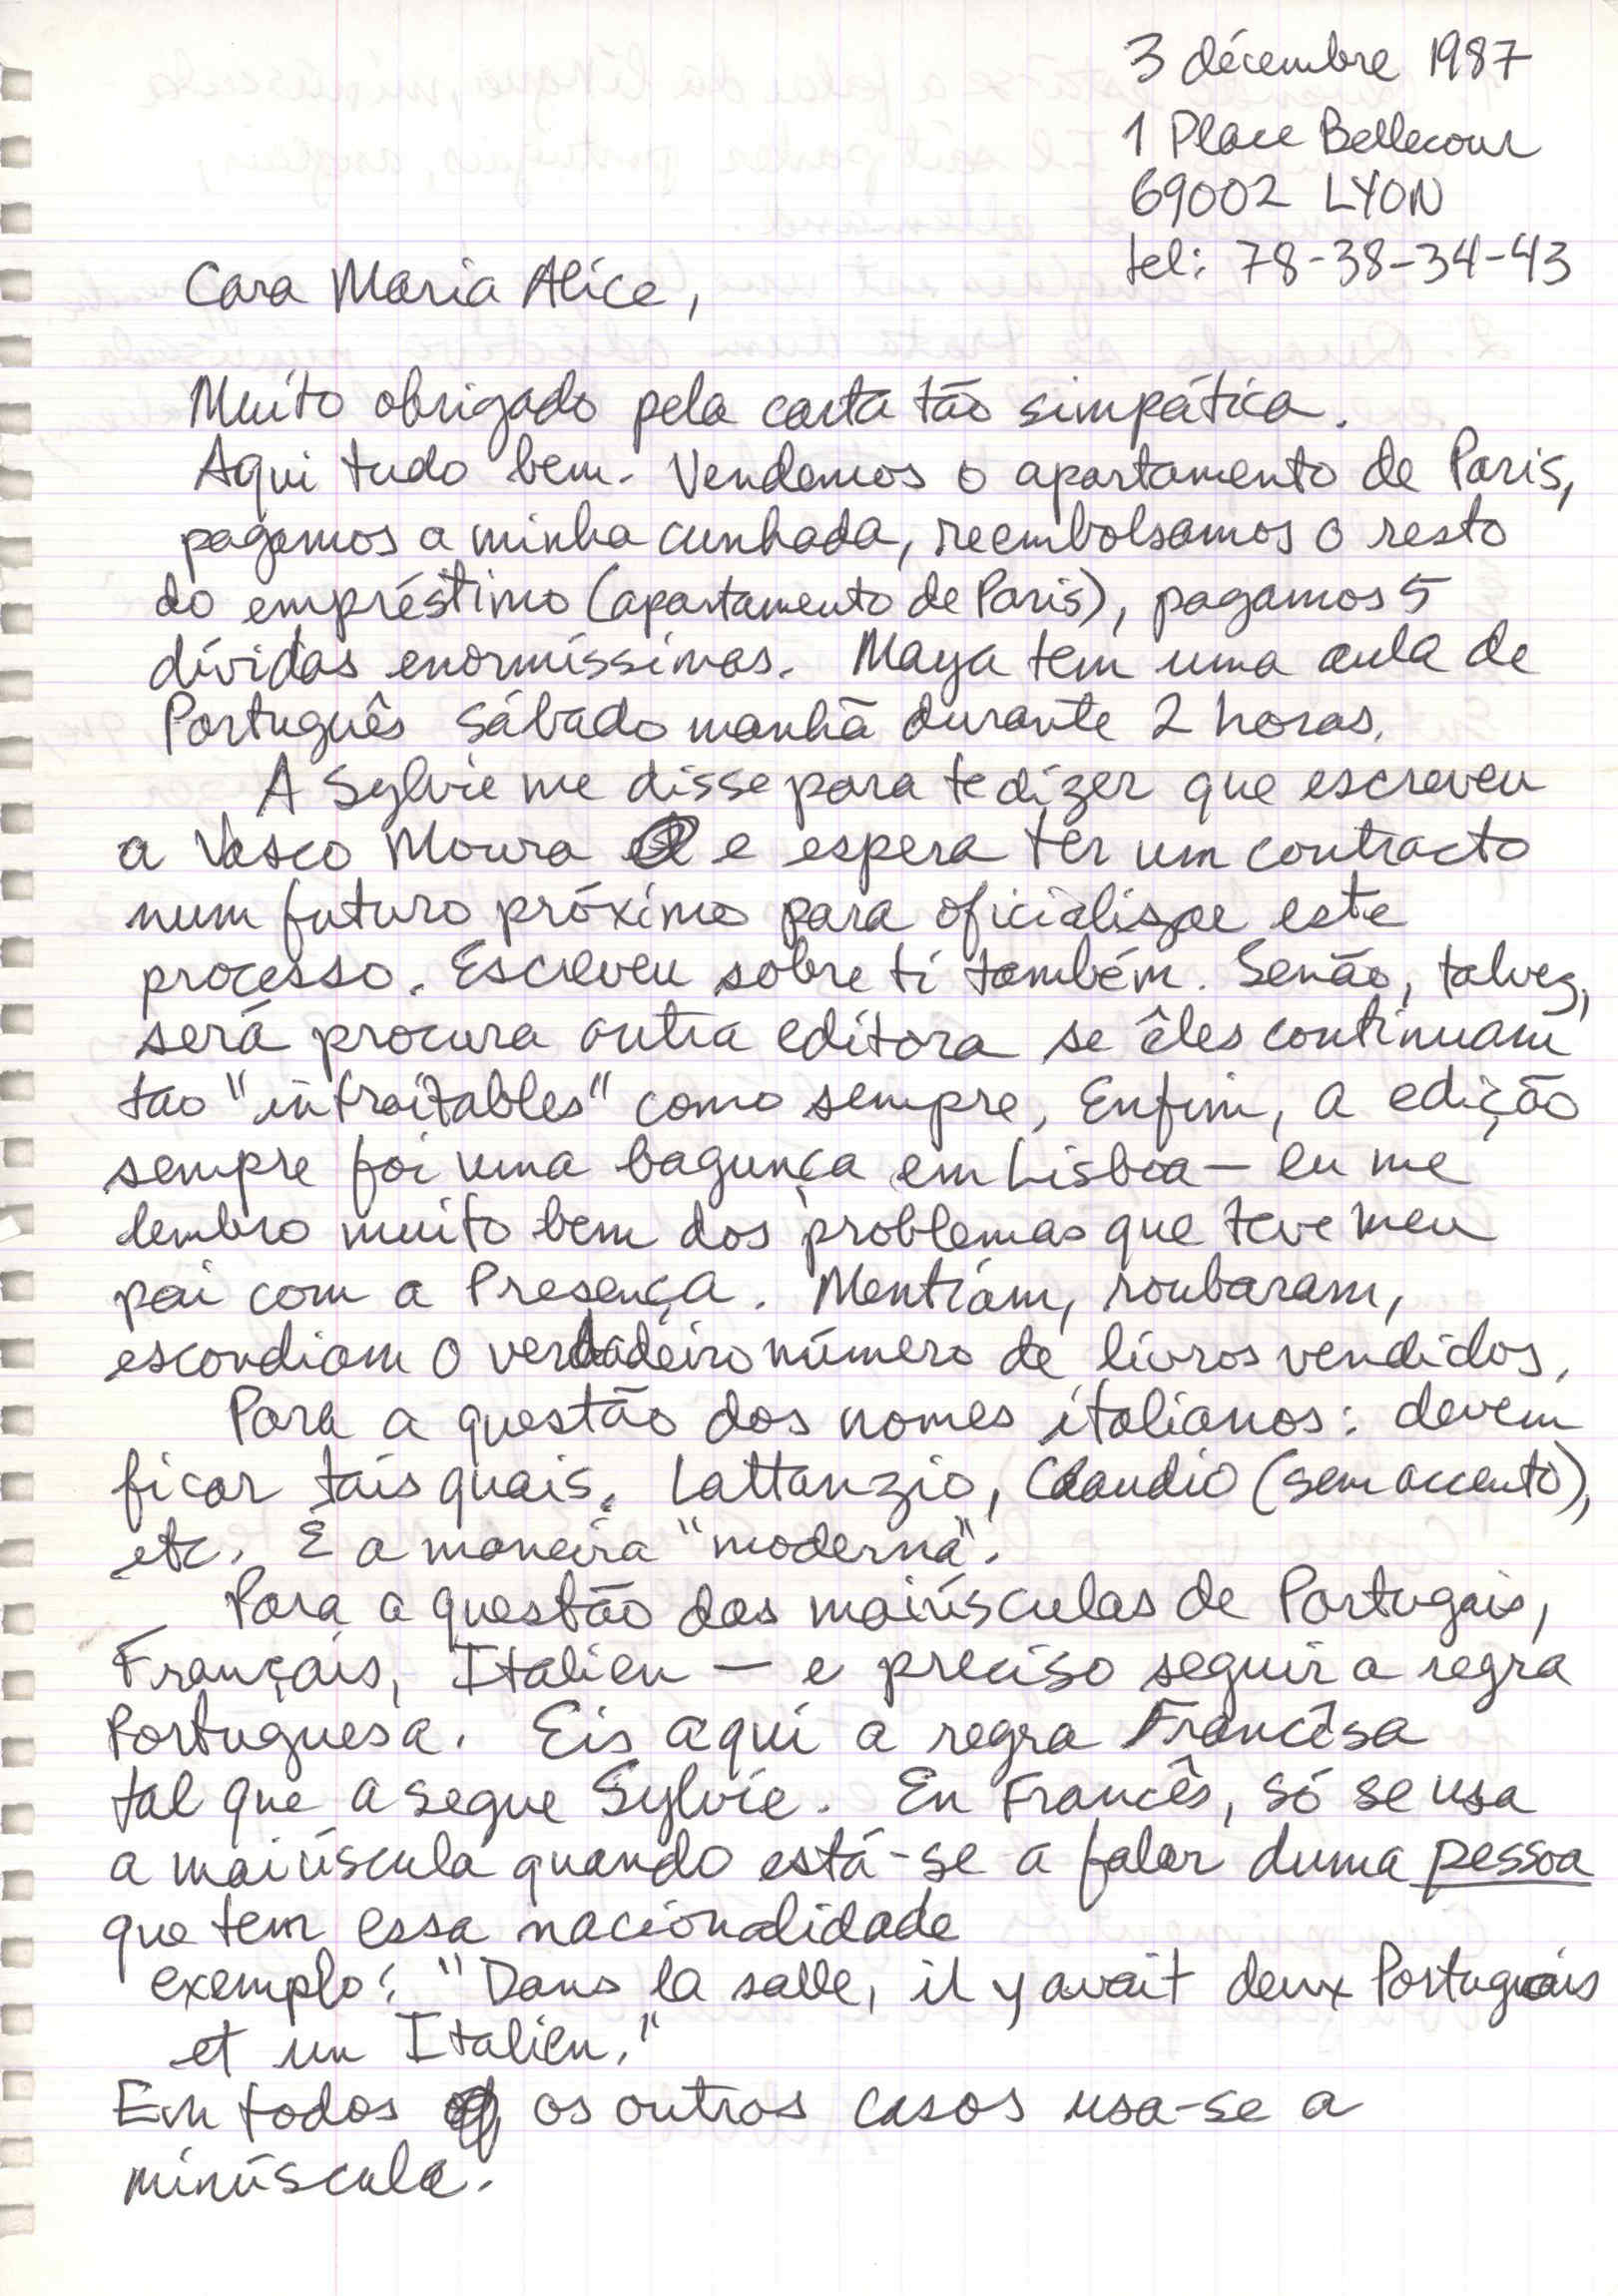 3 décembre 1987
1 Place Bellecour
69002 LYON
tel: 78-38-34-43
Cara Maria Alice,
Muito obrigado pela carta tão simpática.
Aqui tudo bem. Vendemos o apartamento de Paris,
pagamos a minha cunhada, reembolsamos o resto
do empréstimo (apartamento de Paris), pagamos 5
dívidas enormíssimas. Maya tem uma aula de
Português Sábado manhã durante 2 horas.
A Sylvie me disse para te dizer que escreveu
a Vasco Moura e espera ter um contracto
num futuro próximo para oficializar este
processo. Escreveu sobre ti também. Senão, talvez,
será procura outra editora se êles continuam
tao "intraitables" como sempre. Enfim, a edição
sempre foi uma bagunça em Lisboa — eu me
lembro muito bem dos problemas que teve meu
pai com a Presença. Mentiam, roubaram,
escondiam o verdadeiro número de livros vendidos.
Para a questão dos nomes italianos: devem
ficar tais quais. Lattanzio, Claudio (sem accento),
etc. É a maneira "moderna".
Para a questão das maiúsculas de Portugais,
Français, Italien — e preciso seguir a regra
Portuguesa. Eis aqui a regra Francêsa
tal que a segue Sylvie. En Francês, só se usa
a maiúscula quando está-se a falar duma pessoa
que tem essa nacionalidade
exemplo: "Dans la salle, il y avait deux Portugais
et un Italien."
Em todos os outros casos usa-se a
minúscula.